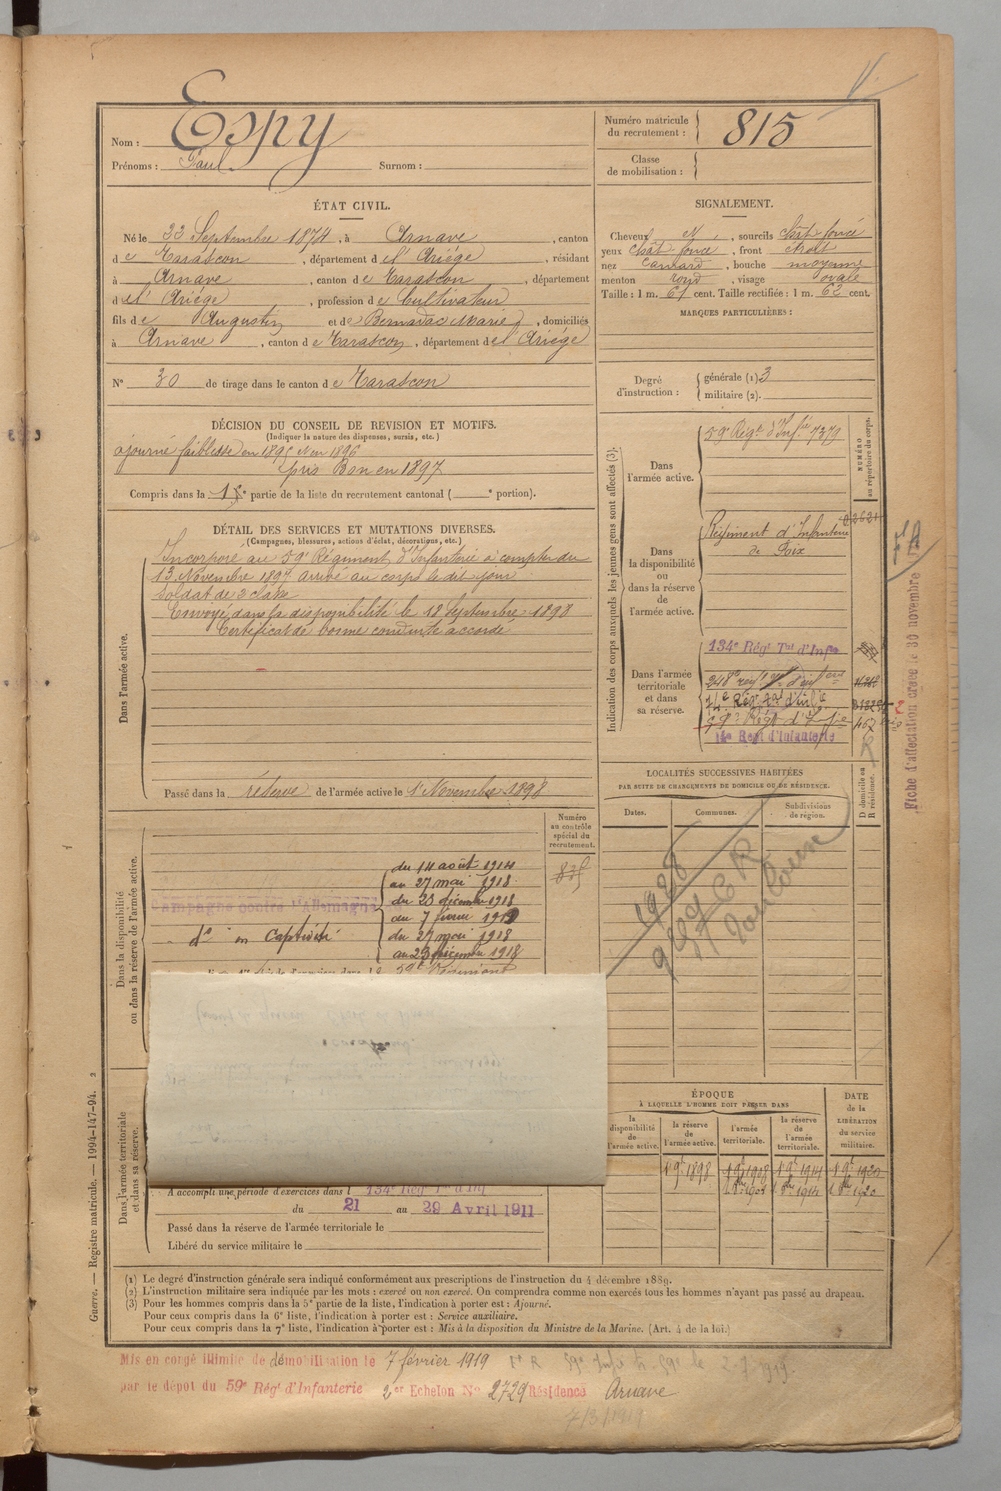 Nom : Espy
Prénoms : Paul Surnom :
Numéro matricule du recrutement : 815
Classe de mobilisation :
ÉTAT CIVIL.
Né le 22 Septembre 1874, à Arnave, canton
de Tarascon, département de l'Ariége, résidant
à Arnave, canton de Tarascon, département
de l'Ariége, profession de Cultivateur
fils de Augustin et de Bernadac Marie, domiciliés
à Arnave, canton de Tarascon, département de l'Ariége
N° 30 de tirage dans le canton de Tarascon
SIGNALEMENT.
Cheveux N, sourcils chât foncé
yeux chât foncé, front étroit
nez camard, bouche moyenne
menton rond, visage ovale
Taille : 1 m. 61 cent. Taille rectifiée : 1 m. 62 cent.
MARQUES PARTICULIÈRES :
Degré d'instruction : générale (1) 3
militaire (2).
DÉCISION DU CONSEIL DE REVISION ET MOTIFS.
(Indiquer la nature des dispenses, sursis, etc.)
ajourné faiblesse en 1895 et en 1896
pris Bon en 1897
Compris dans la 1e partie de la liste du recrutement cantonal ( e portion).
DÉTAIL DES SERVICES ET MUTATIONS DIVERSES.
(Campagnes, blessures, actions d'éclat, décorations, etc.)
Dans l'armée active.
Incorporé au 59e Régiment d'Infanterie à compter du
13 Novembre 1897 arrivé au corps le dit jour
Soldat de 2e classe
Envoyé dans la disponibilité le 18 Septembre 1898
Certificat de bonne conduite accordé
Passé dans la réserve de l'armée active le 1er Novembre 1898
Indication des corps auxquels les jeunes gens sont affectés (3).
NUMÉRO au répertoire du corps.
Dans l'armée active.
59e Régt d'Infie 7379
Dans la disponibilité ou dans la réserve de l'armée active.
Régiment d'Infanterie
de Foix
Dans l'armée territoriale et dans sa réserve.
134e Régt Tal d'Infie
14e Régt d'Infanterie
Fiche d'affectation créée le 30 novembre
LOCALITÉS SUCCESSIVES HABITÉES
PAR SUITE DE CHANGEMENTS DE DOMICILE OU DE RÉSIDENCE.
Dates. Communes. Subdivisions de région. D domicile ou R résidence.
Dans la disponibilité ou dans la réserve de l'armée active.
Numéro au contrôle spécial du recrutement.
Campagne contre l'Allemagne
du 14 août 1914
au 27 mai 1918
du 23 décembre 1918
au 7 février 1919
do en Captivité
du 27 mai 1918
au 23 décembre 1918
Toulouse
Dans l'armée territoriale et dans sa réserve.
A accompli une période d'exercices dans l 134e Régt Tal d'Inf
du 21 au 29 Avril 1911
Passé dans la réserve de l'armée territoriale le
Libéré du service militaire le
ÉPOQUE
À LAQUELLE L'HOMME DOIT PASSER DANS
la disponibilité de l'armée active. la réserve de l'armée active. l'armée territoriale. la réserve de l'armée territoriale.
DATE de la LIBÉRATION du service militaire.
Guerre. — Registre matricule. — 1994-147-94. 2
(1) Le degré d'instruction générale sera indiqué conformément aux prescriptions de l'instruction du 4 décembre 1889.
(2) L'instruction militaire sera indiquée par les mots : exercé ou non exercé. On comprendra comme non exercés tous les hommes n'ayant pas passé au drapeau.
(3) Pour les hommes compris dans la 5e partie de la liste, l'indication à porter est : Ajourné.
Pour ceux compris dans la 6e liste, l'indication à porter est : Service auxiliaire.
Pour ceux compris dans la 7e liste, l'indication à porter est : Mis à la disposition du Ministre de la Marine. (Art. 4 de la loi.)
Mis en congé illimité de démobilisation le 7 février 1919
par le dépôt du 59e Régt d'Infanterie 2er Echelon No 2729 Résidence Arnave
7/3/1919